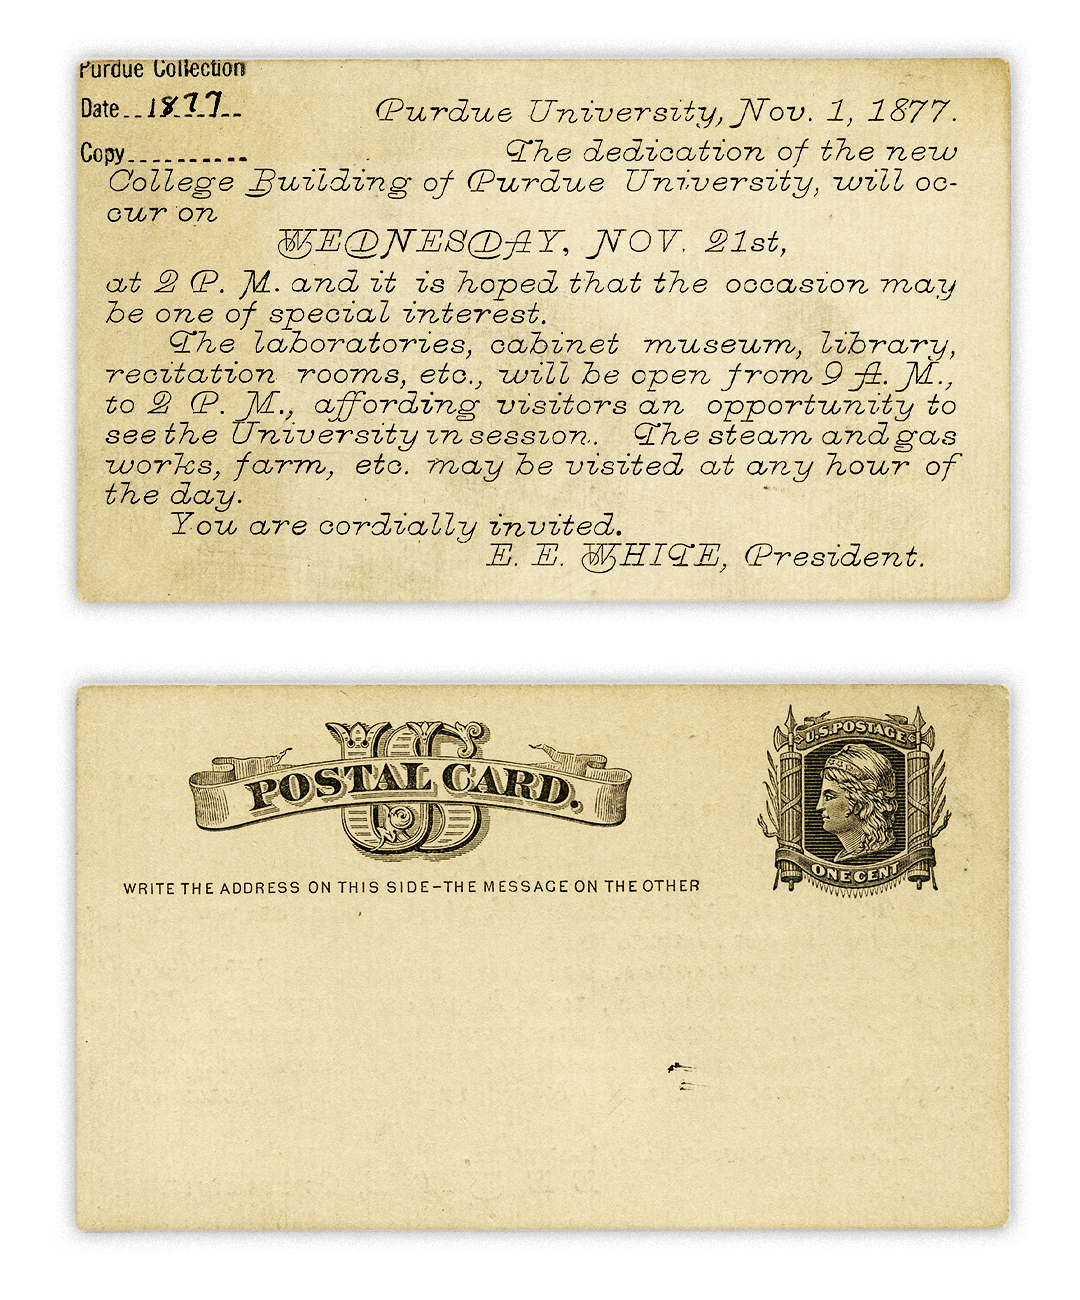 Purdue Collection
Date 1877
Copy
Purdue University, Nov. 1, 1877.
The dedication of the new
College Building of Purdue University, will oc-
cur on
WEDNESDAY, NOV. 21st,
at 2 P. M. and it is hoped that the occasion may
be one of special interest.
The laboratories, cabinet museum, library,
recitation rooms, etc., will be open from 9 A. M.,
to 2 P. M., affording visitors an opportunity to
see the University in session. The steam and gas
works, farm, etc. may be visited at any hour of
the day.
You are cordially invited.
E. E. WHITE, President.
US
POSTAL CARD.
WRITE THE ADDRESS ON THIS SIDE–THE MESSAGE ON THE OTHER
U.S. POSTAGE
ONE CENT